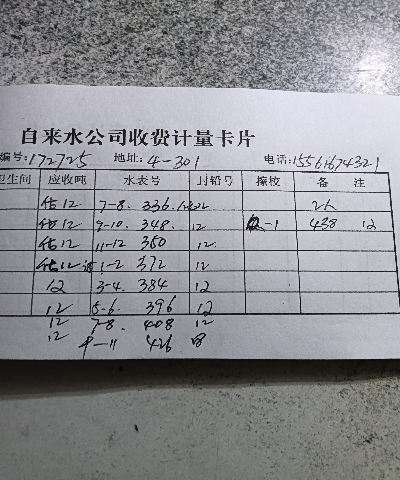 自来水公司收费计量卡片
编号:172725 地址: 4-301 电话:15561674321
卫生间 应收吨 水表号 封铅号 擦校 备 注
估12 7-8. 336.
估12 9-10. 348. 12 -1 438 12
估12 11-12 360 12
估12 1-2 372 12
12 3-4. 384 12
12 5-6. 396 12
12 7-8. 408 12
12 9-11 426